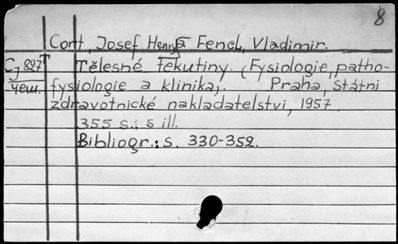 8
Cont, Josef Henry a Fencl, Vladimir.
Cj 827 Tělesné tekutiny. (Fysiologie, patho-
чеш. fysiologie a klinika). Praha, Státní
zdravotnické nakladatelstvi, 1957.
355 s.; s ill.
Bibliogr.: s. 330-352.